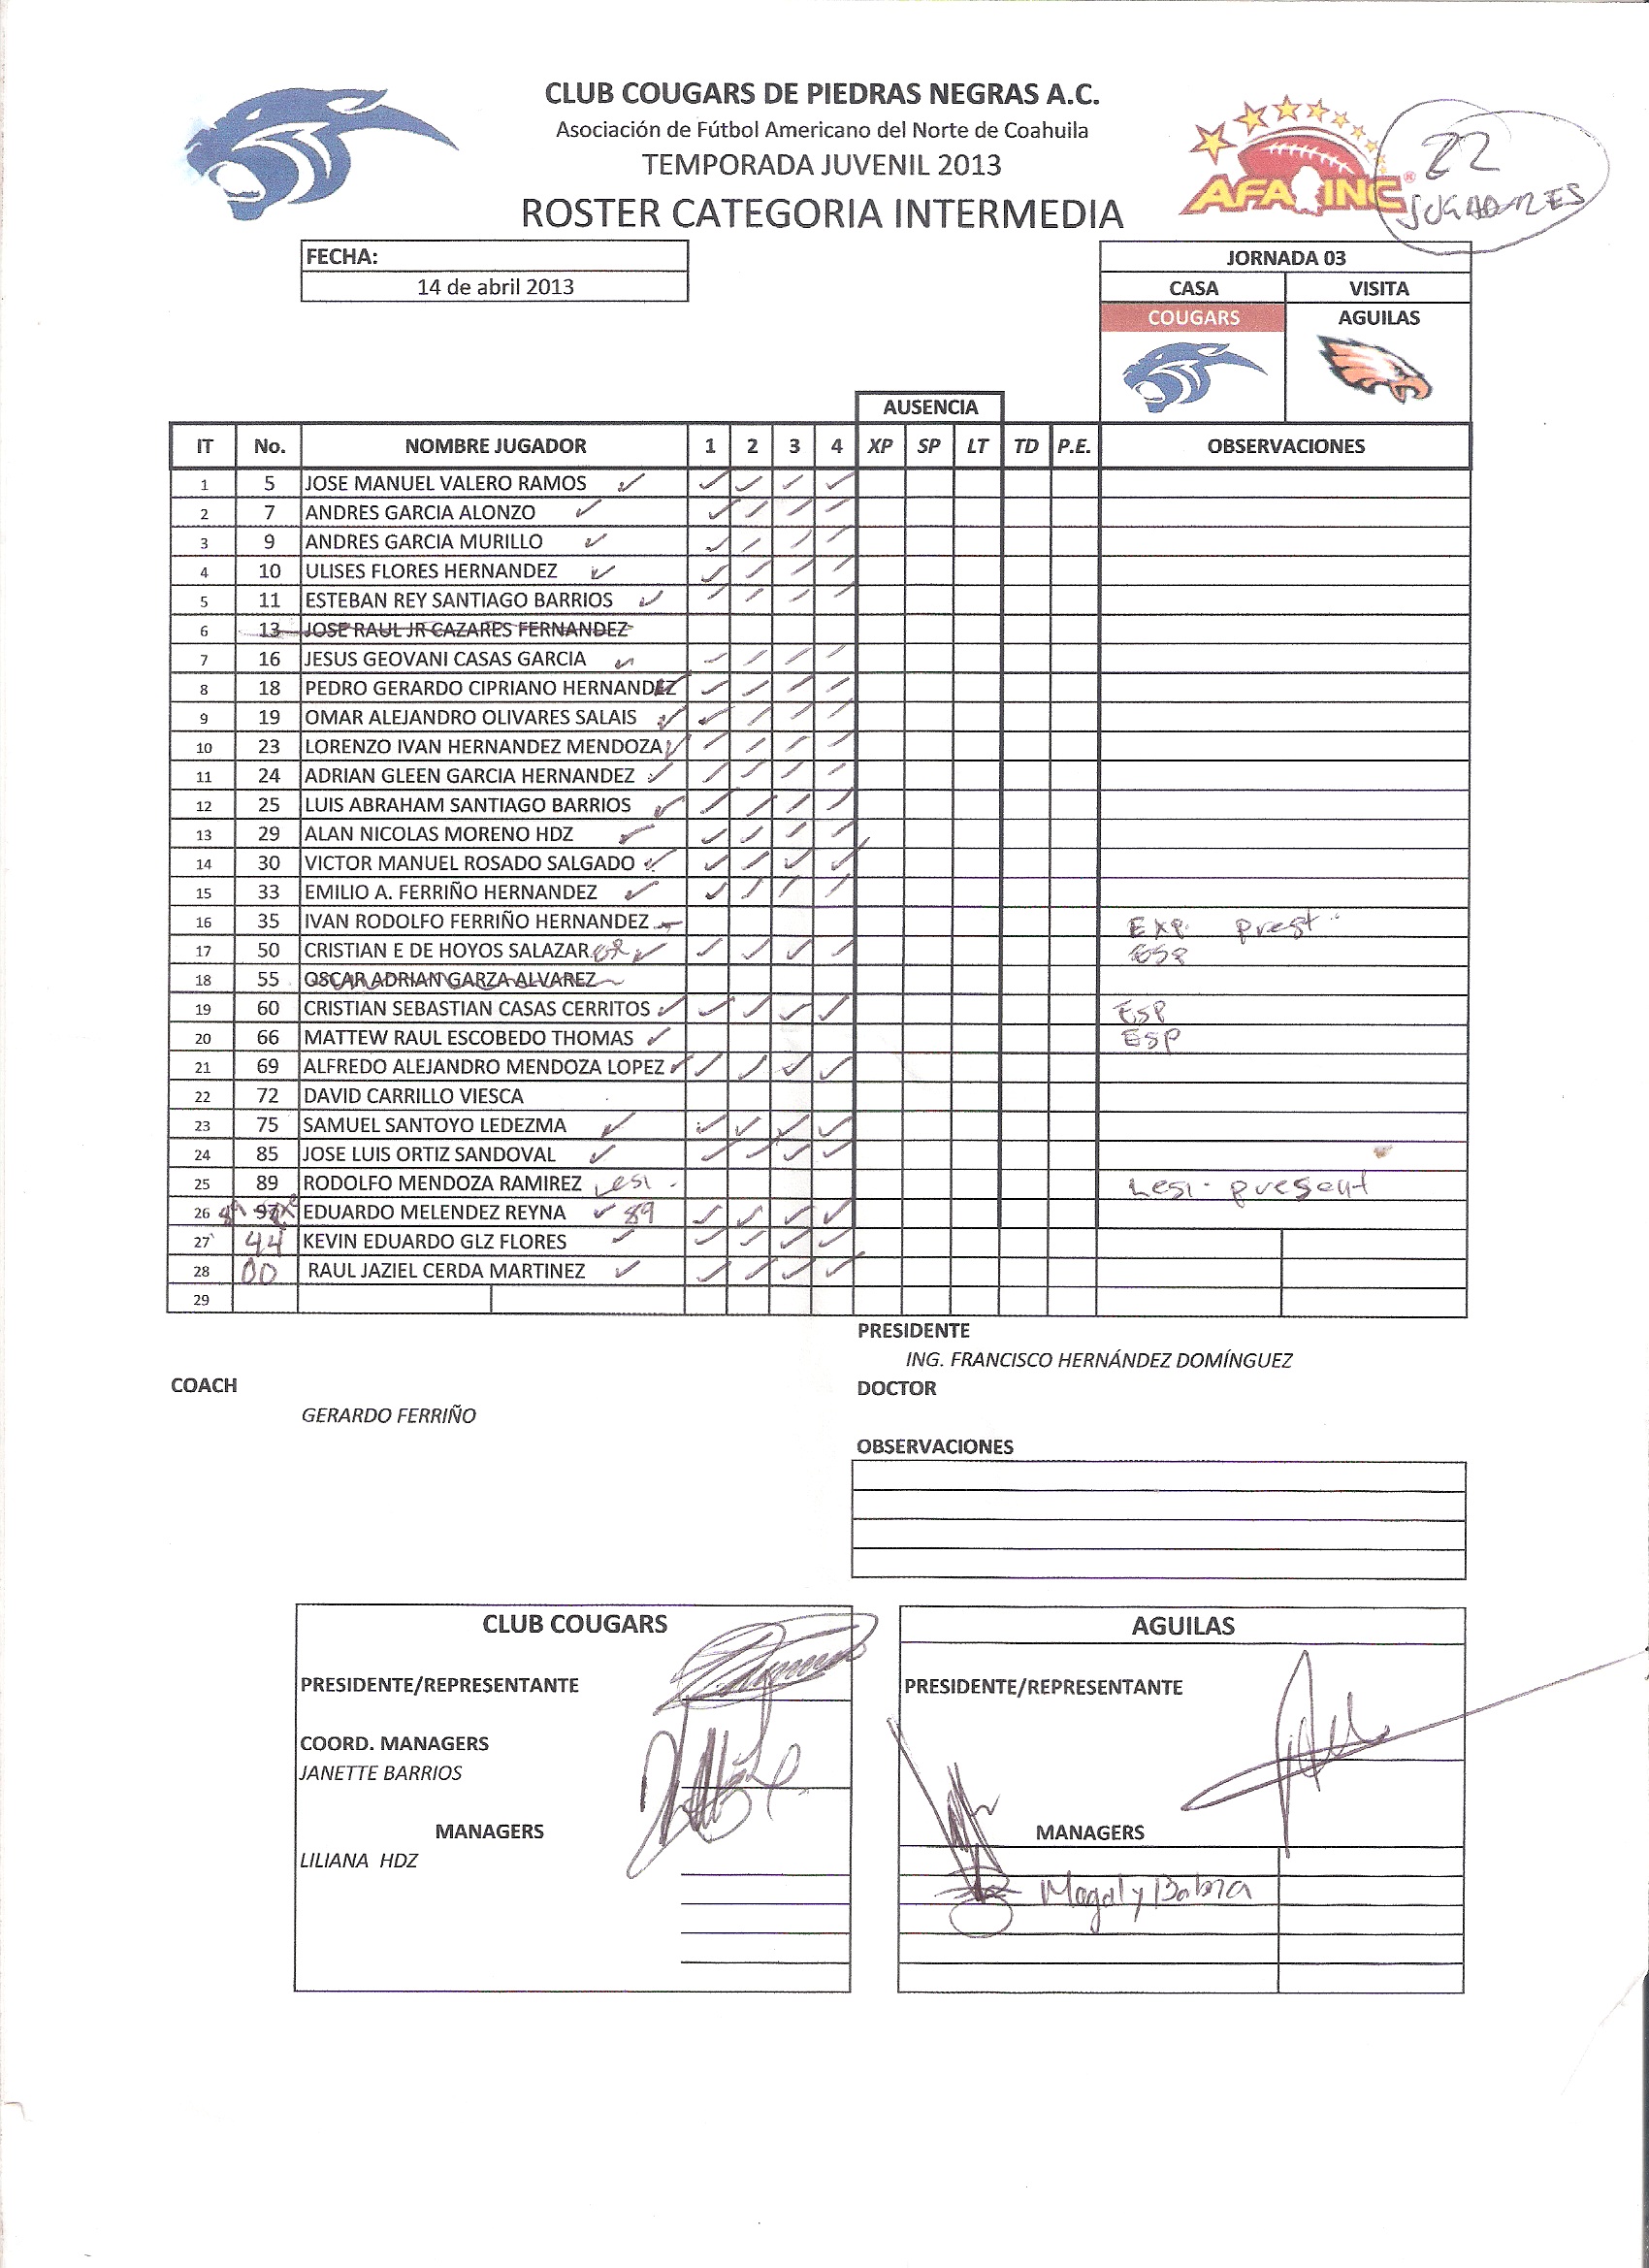 CLUB COUGARS DE PIEDRAS NEGRAS A.C.
Asociación de Fútbol Americano del Norte de Coahuila
TEMPORADA JUVENIL 2013
ROSTER CATEGORIA INTERMEDIA
AFA INC®
22
JUGADORES
FECHA:
14 de abril 2013
JORNADA 03
CASA VISITA
COUGARS AGUILAS
AUSENCIA
IT No. NOMBRE JUGADOR 1 2 3 4 XP SP LT TD P.E. OBSERVACIONES
1 5 JOSE MANUEL VALERO RAMOS
2 7 ANDRES GARCIA ALONZO
3 9 ANDRES GARCIA MURILLO
4 10 ULISES FLORES HERNANDEZ
5 11 ESTEBAN REY SANTIAGO BARRIOS
6 13 JOSE RAUL JR CAZARES FERNANDEZ
7 16 JESUS GEOVANI CASAS GARCIA
8 18 PEDRO GERARDO CIPRIANO HERNANDEZ
9 19 OMAR ALEJANDRO OLIVARES SALAIS
10 23 LORENZO IVAN HERNANDEZ MENDOZA
11 24 ADRIAN GLEEN GARCIA HERNANDEZ
12 25 LUIS ABRAHAM SANTIAGO BARRIOS
13 29 ALAN NICOLAS MORENO HDZ
14 30 VICTOR MANUEL ROSADO SALGADO
15 33 EMILIO A. FERRIÑO HERNANDEZ
16 35 IVAN RODOLFO FERRIÑO HERNANDEZ Exp. prest
17 50 CRISTIAN E DE HOYOS SALAZAR ESP
18 55 OSCAR ADRIAN GARZA ALVAREZ
19 60 CRISTIAN SEBASTIAN CASAS CERRITOS ESP
20 66 MATTEW RAUL ESCOBEDO THOMAS ESP
21 69 ALFREDO ALEJANDRO MENDOZA LOPEZ
22 72 DAVID CARRILLO VIESCA
23 75 SAMUEL SANTOYO LEDEZMA
24 85 JOSE LUIS ORTIZ SANDOVAL
25 89 RODOLFO MENDOZA RAMIREZ Lesi. Lesi. present
26 EDUARDO MELENDEZ REYNA 89
27 44 KEVIN EDUARDO GLZ FLORES
28 00 RAUL JAZIEL CERDA MARTINEZ
29
PRESIDENTE
ING. FRANCISCO HERNÁNDEZ DOMÍNGUEZ
COACH
DOCTOR
GERARDO FERRIÑO
OBSERVACIONES
CLUB COUGARS
PRESIDENTE/REPRESENTANTE
COORD. MANAGERS
JANETTE BARRIOS
MANAGERS
LILIANA HDZ
AGUILAS
PRESIDENTE/REPRESENTANTE
MANAGERS
Magaly